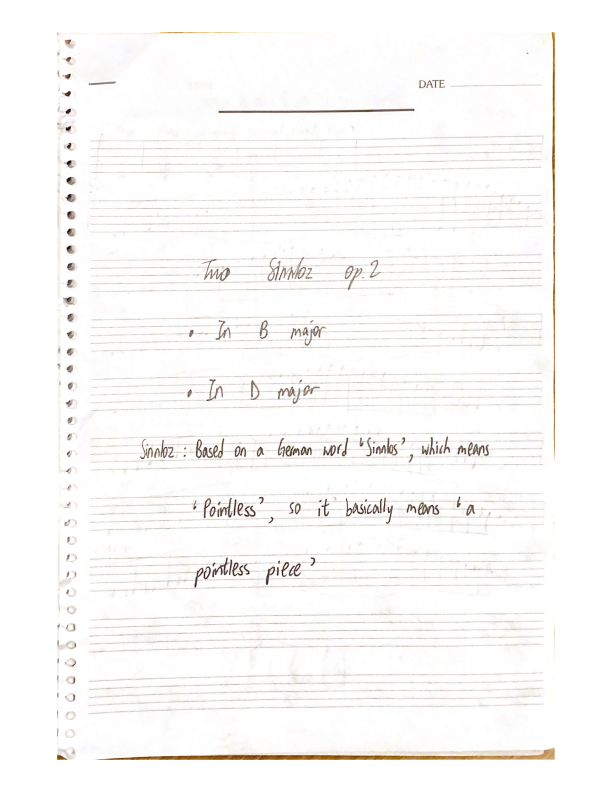 DATE
Two Sinnloz op.2
• In B major
• In D major
Sinnloz : Based on a German word 'Sinnlos', which means
'Pointless', so it basically means 'a
pointless piece'